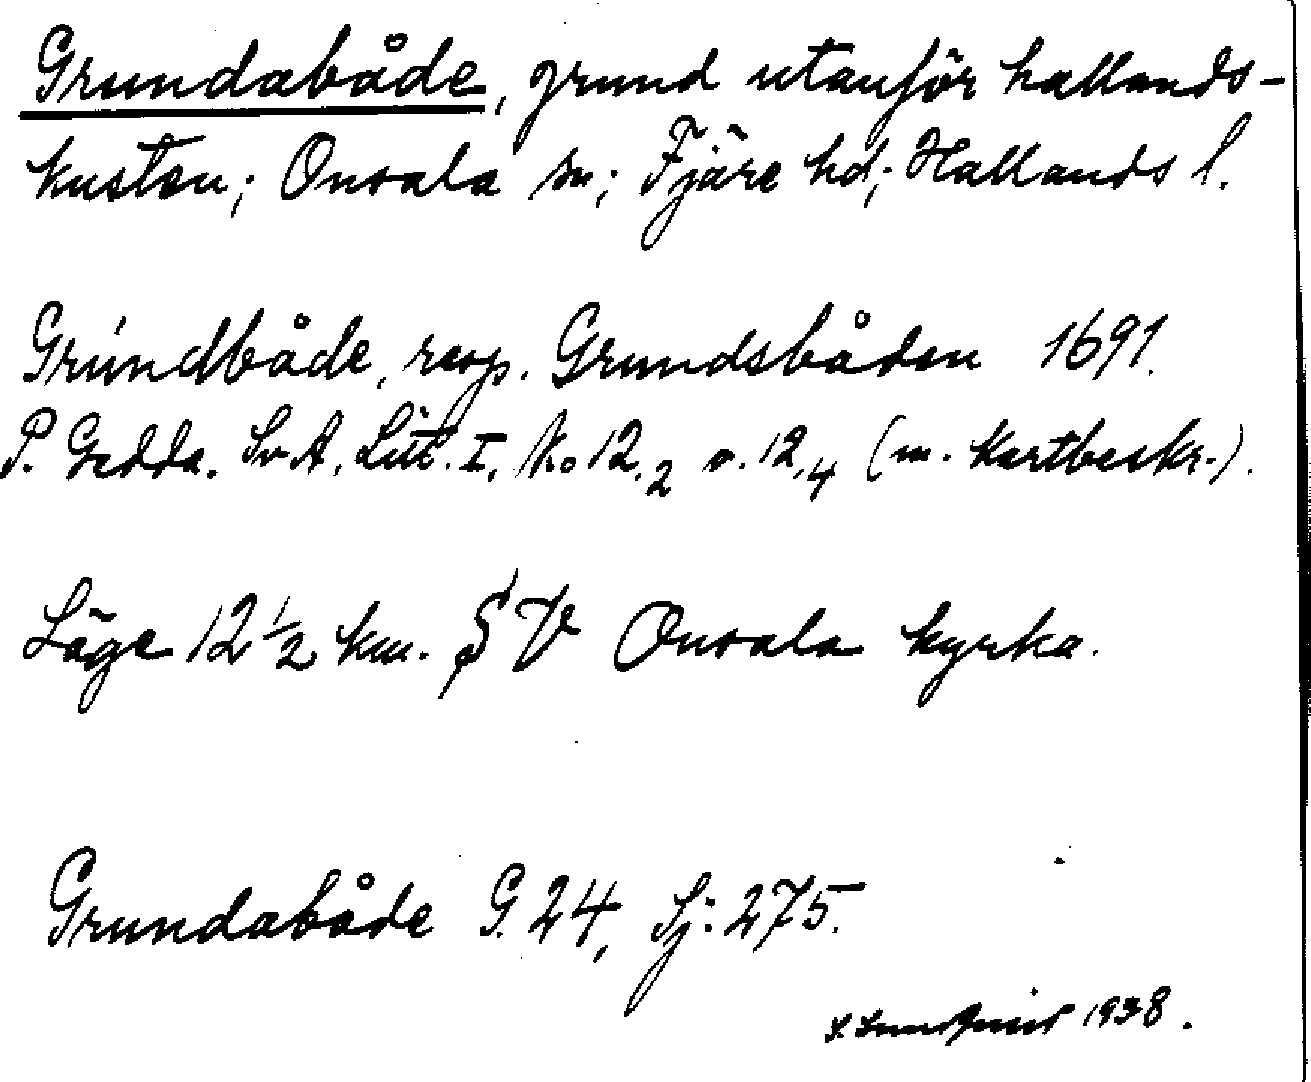 Grundabåde, grund utanför hallands-
kusten; Onsala sn; Fjäre hd; Hallands l.
Grundbåde, resp. Grundsbåden 1691.
P. Gedda. Sv. A. Litt. I, No 12,2 o. 12,4 (m. kartbeskr.).
Läge 12 1/2 km. SV Onsala kyrka.
Grundabåde G. 24, Sj: 275.
1938.